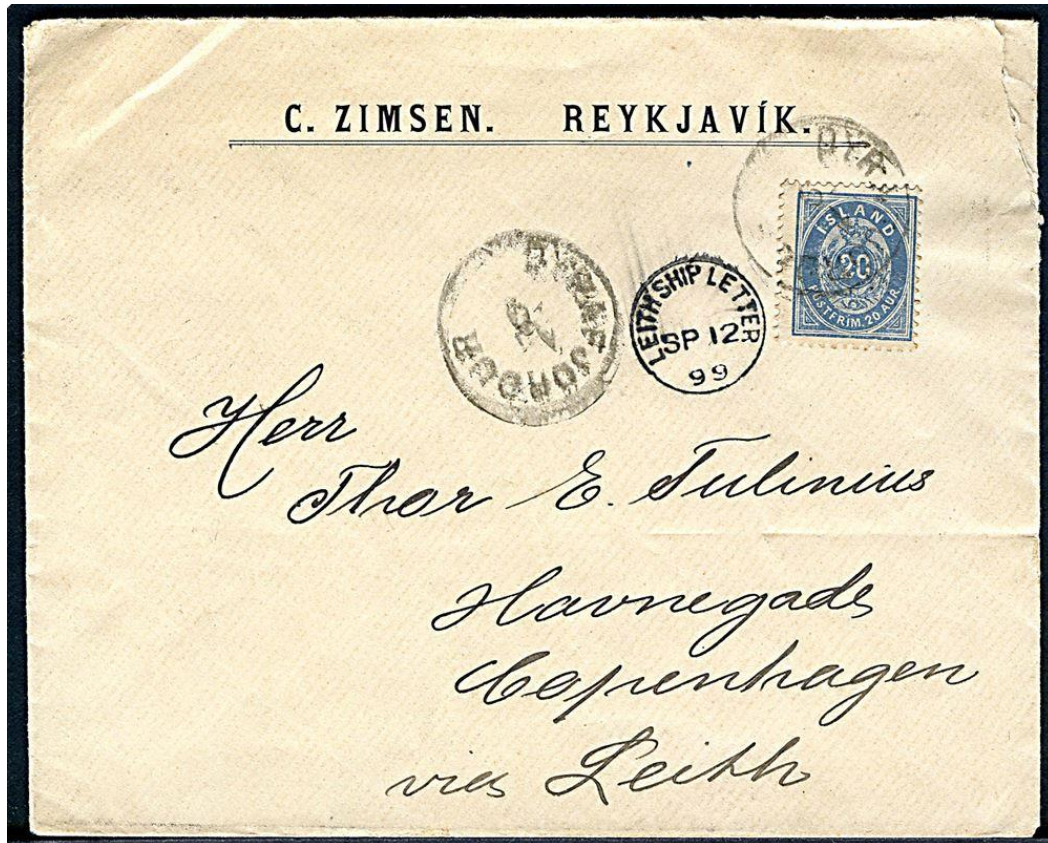 C. ZIMSEN. REYKJAVÍK.
DYR
ÍSLAND
20
PÓSTFRIM. 20 AUR.
LEITH SHIP LETTER
SP 12
99
DYRAFJÖRÐUR
Herr
Thor E. Tulinius
Havnegade
Copenhagen
via Leith